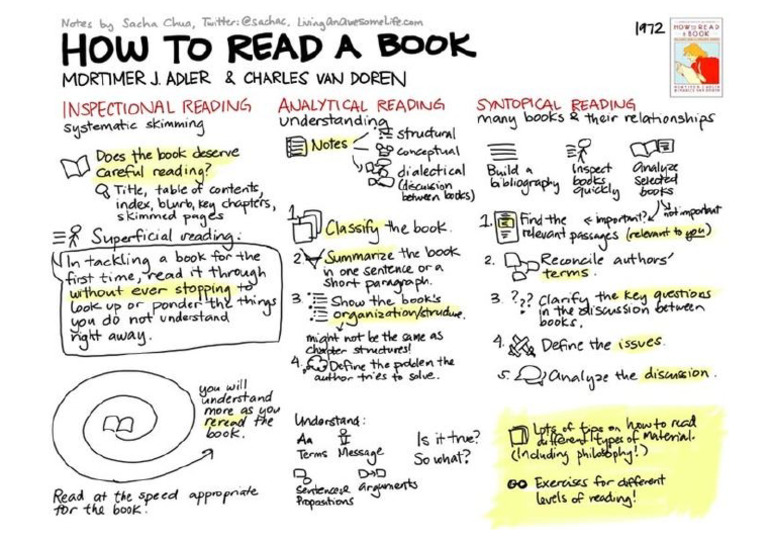 Notes by Sacha Chua, Twitter: @sachac, LivingAnAwesomeLife.com
HOW TO READ A BOOK
MORTIMER J. ADLER & CHARLES VAN DOREN
1972
HOW TO READ
A BOOK
INSPECTIONAL READING
systematic skimming
Does the book deserve
careful reading?
Title, table of contents,
index, blurb, key chapters,
skimmed pages
Superficial reading:
In tackling a book for the
first time, read it through
without ever stopping to
look up or ponder the things
you do not understand
right away.
you will
understand
more as you
reread the
book.
Read at the speed appropriate
for the book!
ANALYTICAL READING
understanding
Notes
structural
conceptual
dialectical
(discussion
between books)
1. Classify the book.
2. Summarize the book
in one sentence or a
short paragraph.
3. Show the book's
organization/structure.
might not be the same as
chapter structures!
4. Define the problem the
author tries to solve.
Understand:
Aa
Terms Message
Sentences & Arguments
Propositions
Is it true?
So what?
SYNTOPICAL READING
many books & their relationships
Build a
bibliography
Inspect
books
quickly
Analyze
selected
books
1. Find the
relevant passages (relevant to you)
important?
not important
2. Reconcile authors'
terms.
3. ??? Clarify the key questions
in the discussion between
books.
4. Define the issues.
5. Analyze the discussion.
Lots of tips on how to read
different types of material.
(Including philosophy!)
Exercises for different
levels of reading!